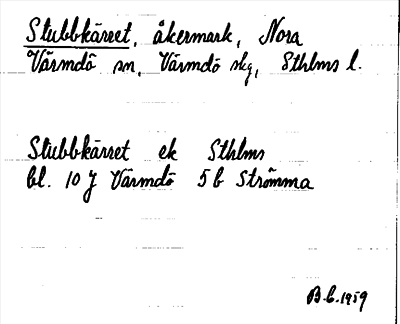 Stubbkärret, åkermark, Nora
Värmdö sn, Värmdö skg, Sthlms l.
Stubbkärret ek Sthlms
bl. 10 J Värmdö 5 b Strömma
B.C. 1959